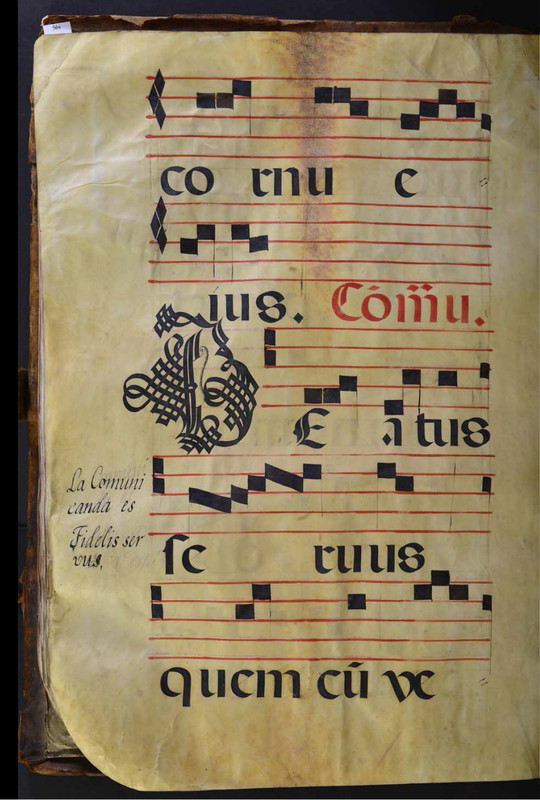 co rnu e
ius. Cōm̄u.
BE atus
La Comuni
canda es
Fidelis ser
vus,
se ruus
quem cū ve